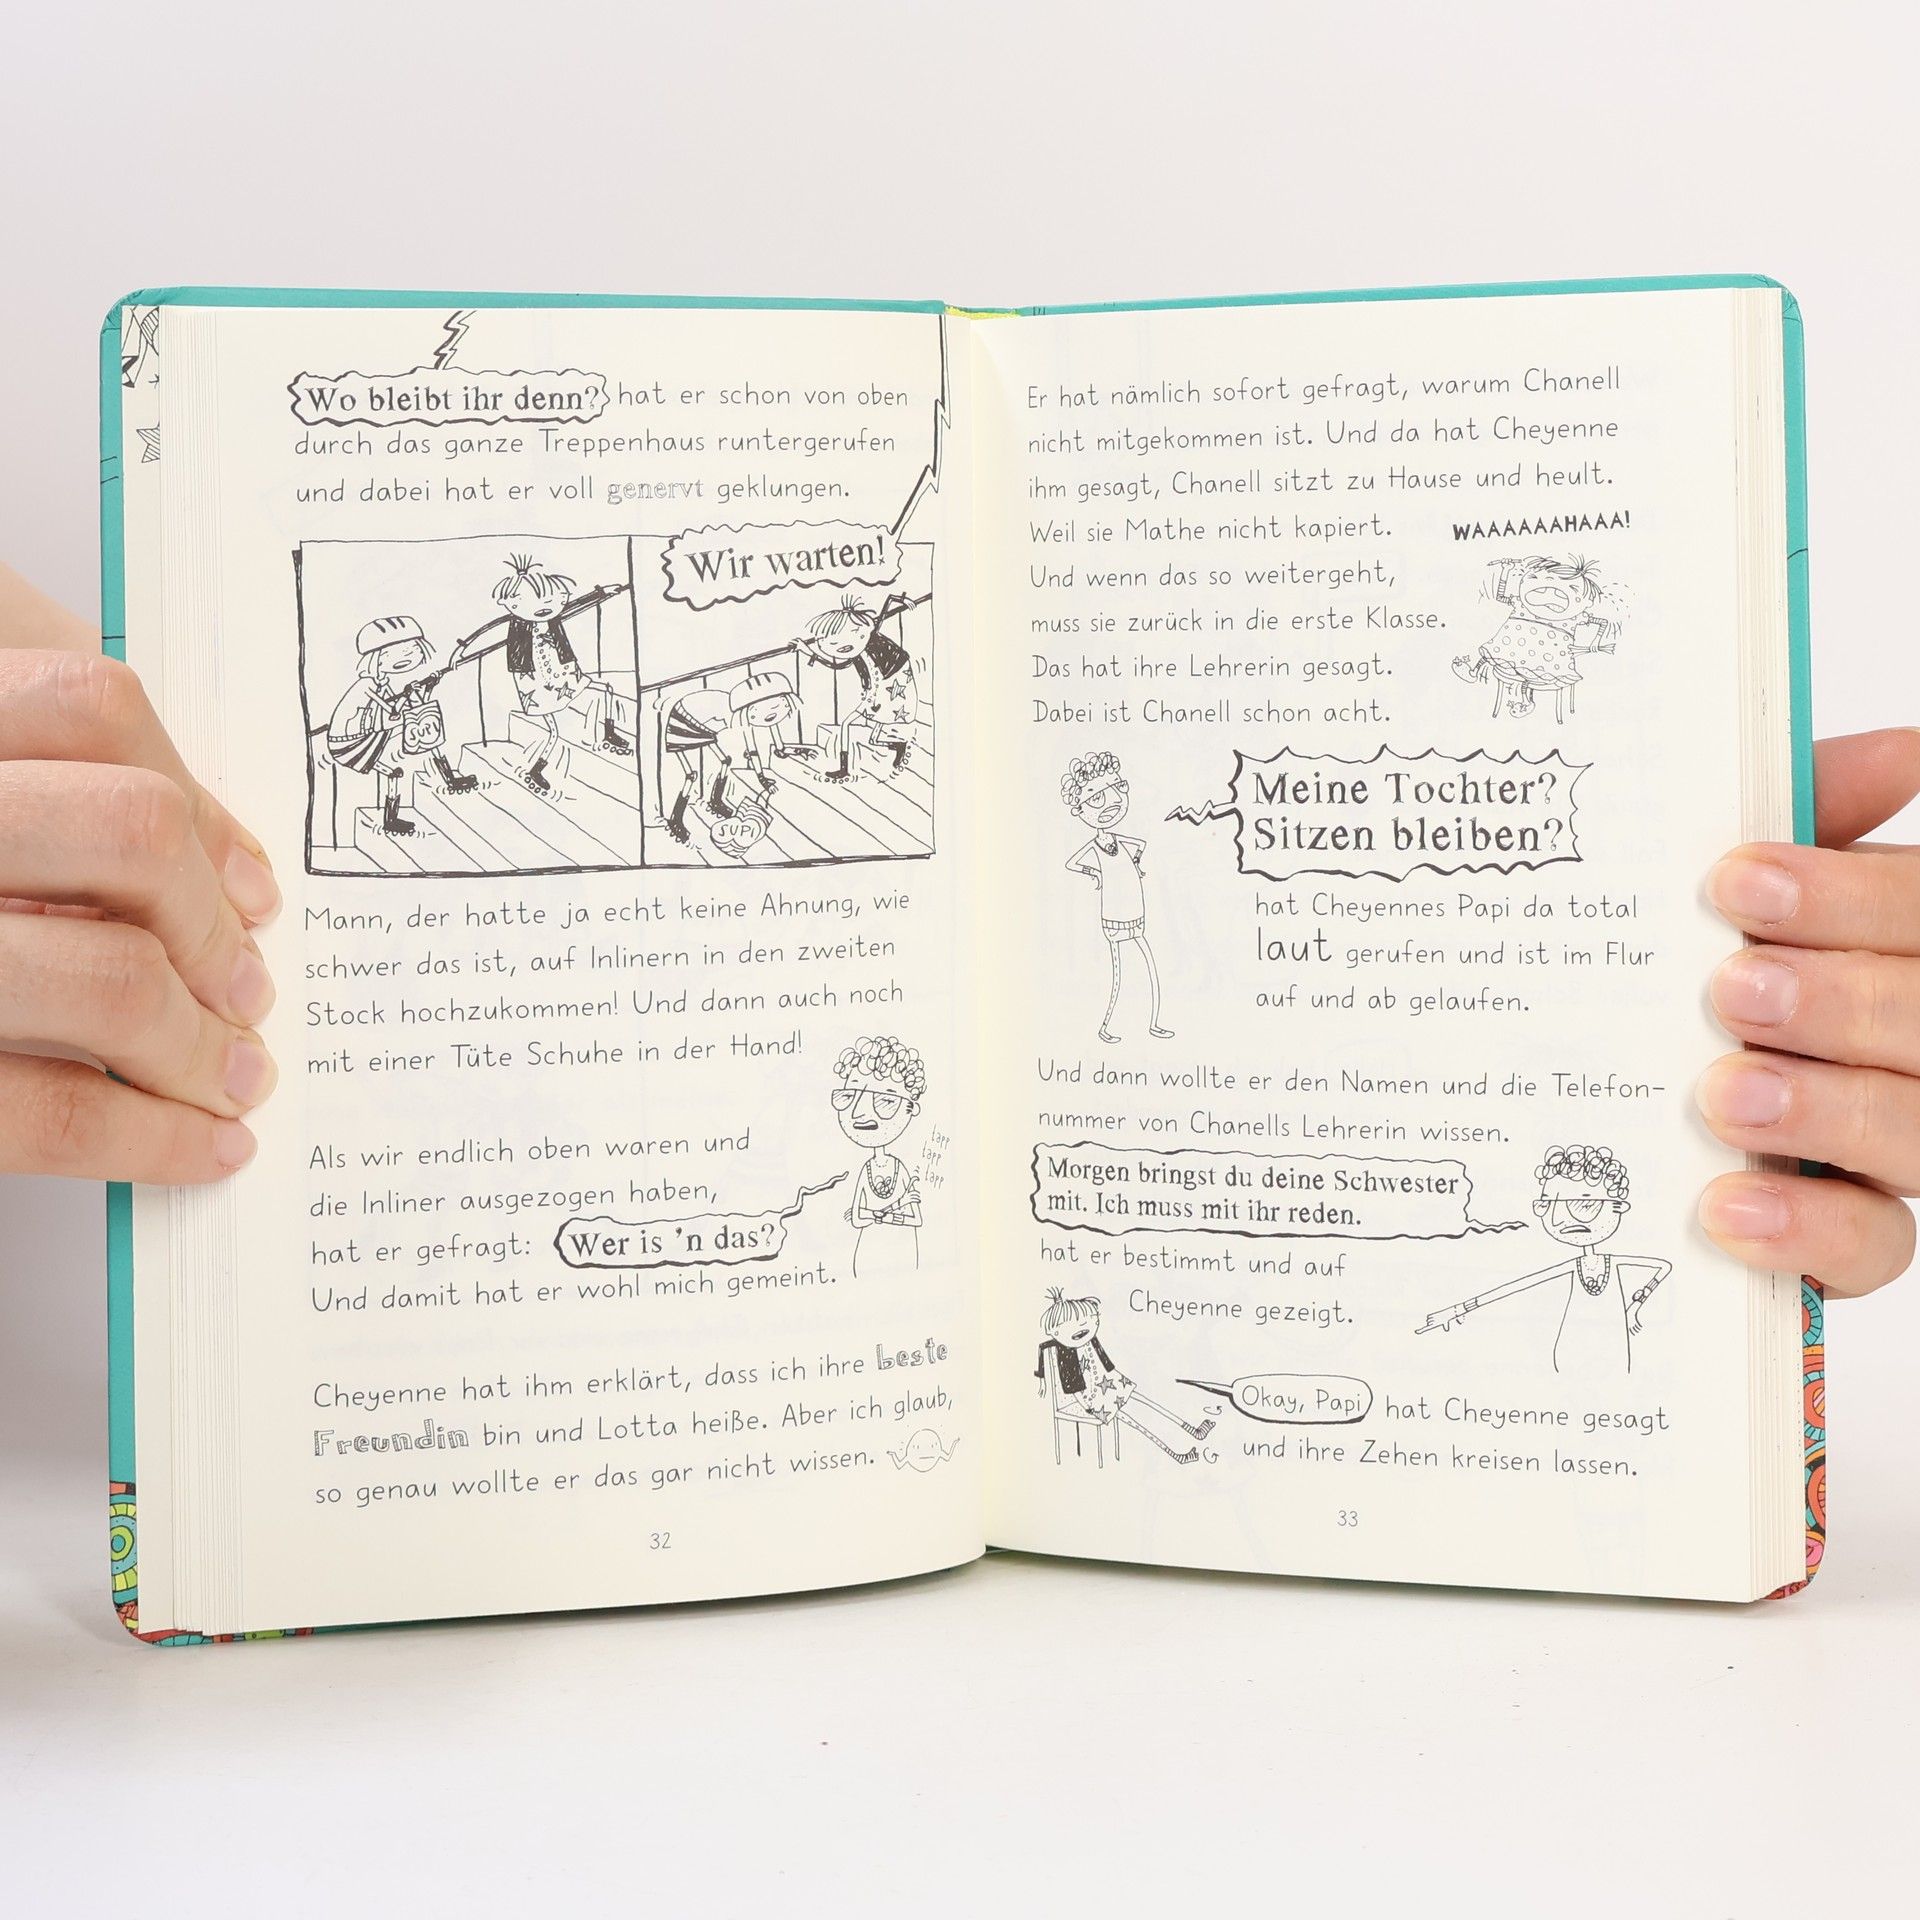 Wo bleibt ihr denn? hat er schon von oben
durch das ganze Treppenhaus runtergerufen
und dabei hat er voll genervt geklungen.
Wir warten!
SUPI
SUPI
Mann, der hatte ja echt keine Ahnung, wie
schwer das ist, auf Inlinern in den zweiten
Stock hochzukommen! Und dann auch noch
mit einer Tüte Schuhe in der Hand!
Als wir endlich oben waren und
die Inliner ausgezogen haben,
tapp
tapp
tapp
hat er gefragt: Wer is 'n das?
Und damit hat er wohl mich gemeint.
Cheyenne hat ihm erklärt, dass ich ihre beste
Freundin bin und Lotta heiße. Aber ich glaub,
so genau wollte er das gar nicht wissen.
32
Er hat nämlich sofort gefragt, warum Chanell
nicht mitgekommen ist. Und da hat Cheyenne
ihm gesagt, Chanell sitzt zu Hause und heult.
Weil sie Mathe nicht kapiert.
WAAAAAAHAAA!
Und wenn das so weitergeht,
muss sie zurück in die erste Klasse.
Das hat ihre Lehrerin gesagt.
Dabei ist Chanell schon acht.
Meine Tochter?
Sitzen bleiben?
hat Cheyennes Papi da total
laut gerufen und ist im Flur
auf und ab gelaufen.
Und dann wollte er den Namen und die Telefon-
nummer von Chanells Lehrerin wissen.
Morgen bringst du deine Schwester
mit. Ich muss mit ihr reden.
hat er bestimmt und auf
Cheyenne gezeigt.
Okay, Papi hat Cheyenne gesagt
und ihre Zehen kreisen lassen.
33